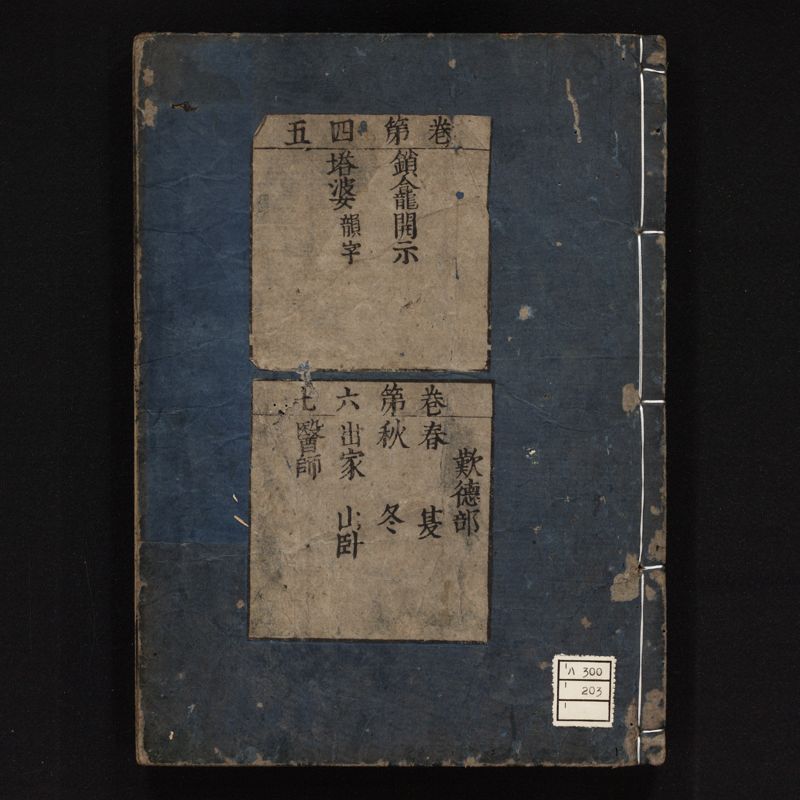 卷
第鎖龕開示
四塔婆韻字
五
歎德部
卷春 夏
第秋 冬
六出家 山臥
七醫師
ハ 300
203